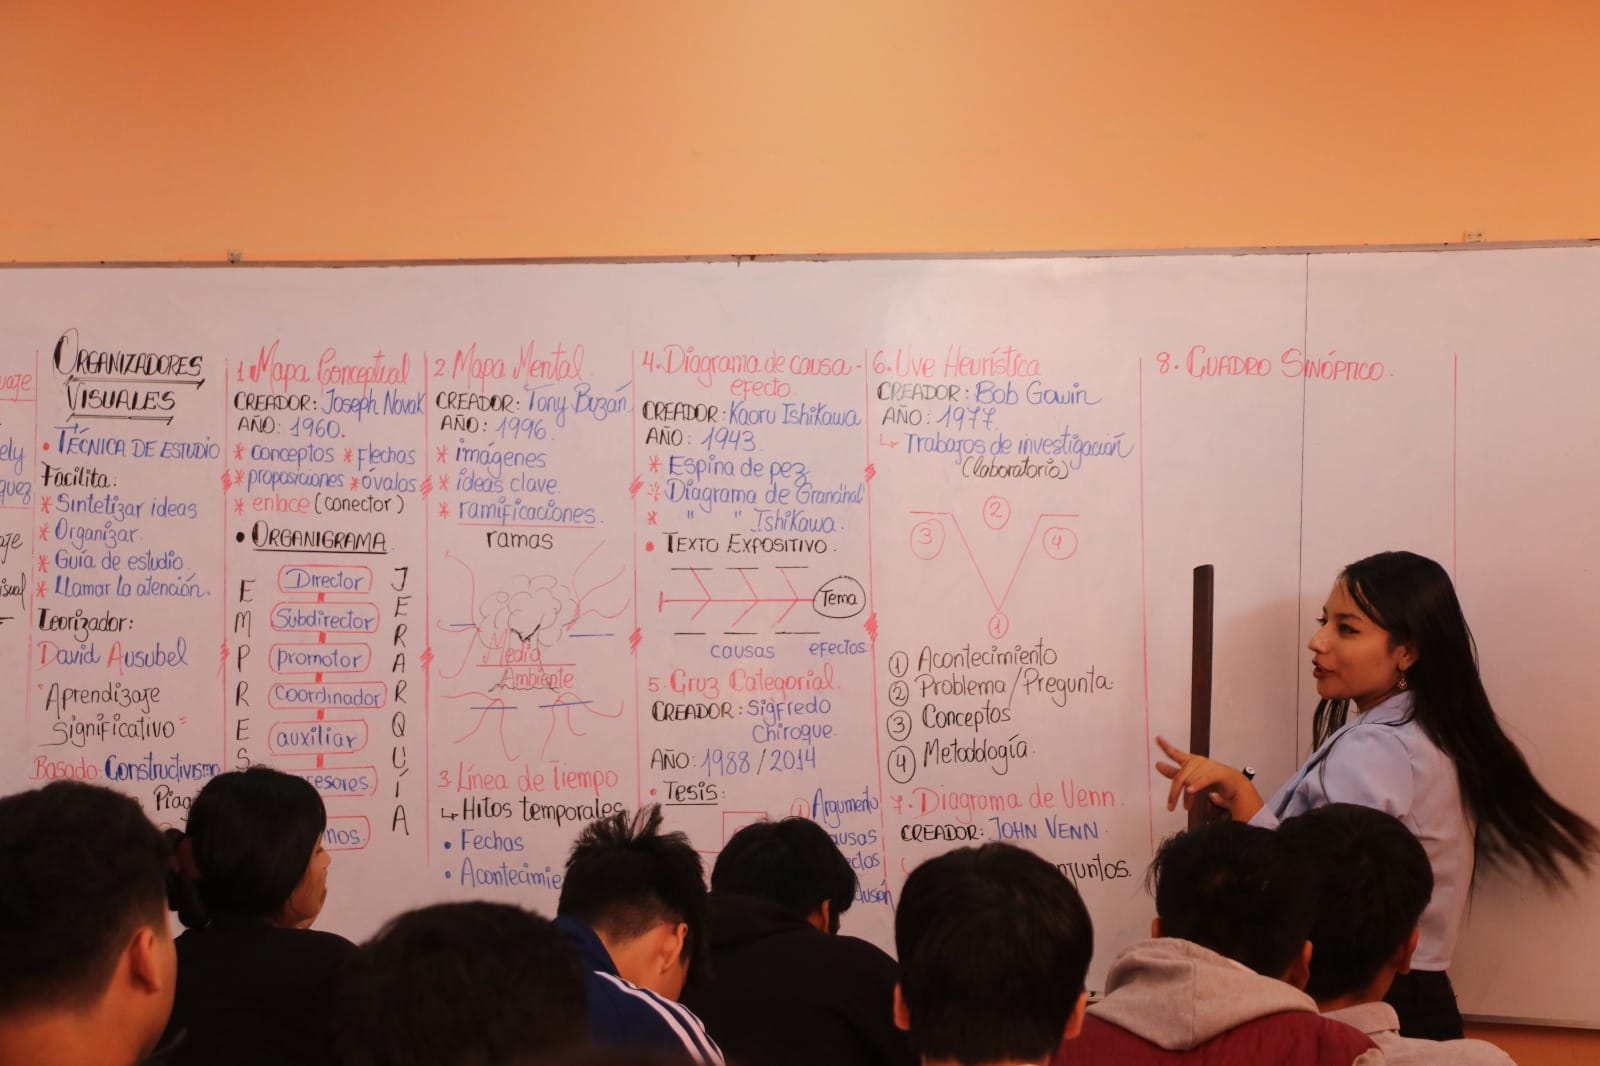 ORGANIZADORES
VISUALES
• TÉCNICA DE ESTUDIO
Facilita:
* Sintetizar ideas
* Organizar.
* Guía de estudio.
* Llamar la atención.
Teorizador:
David Ausubel
"Aprendizaje
Significativo"
Basado: Constructivismo
1. Mapa Conceptual
CREADOR: Joseph Novak
AÑO: 1960.
* conceptos * Flechas
* proposiciones * óvalos
* enlace (conector)
• ORGANIGRAMA
EMPRES
Director
Subdirector
promotor
Coordinador
auxiliar
JERARQUÍA
2. Mapa Mental
CREADOR: Tony Buzan
AÑO: 1996
* imágenes
* ideas clave.
* ramificaciones.
ramas
Medio
Ambiente
3. Línea de Tiempo
↳ Hitos temporales
• Fechas
4. Diagrama de causa-
efecto
CREADOR: Kaoru Ishikawa
AÑO: 1943.
* Espina de pez
* Diagrama de Grandhal
* " " Ishikawa.
• TEXTO EXPOSITIVO.
Tema
causas efectos
5. Cruz Categorial
CREADOR: Sigfredo
Chiroque.
AÑO: 1988/2014
• Tesis:
① Argumento
6. Uve Heurística
CREADOR: Bob Gowin
AÑO: 1977.
↳ Trabajos de investigación
(laboratorio)
②
③ ④
①
① Acontecimiento
② Problema/Pregunta.
③ Conceptos
④ Metodología.
7. Diagrama de Venn.
CREADOR: JOHN VENN.
8. CUADRO SINÓPTICO.